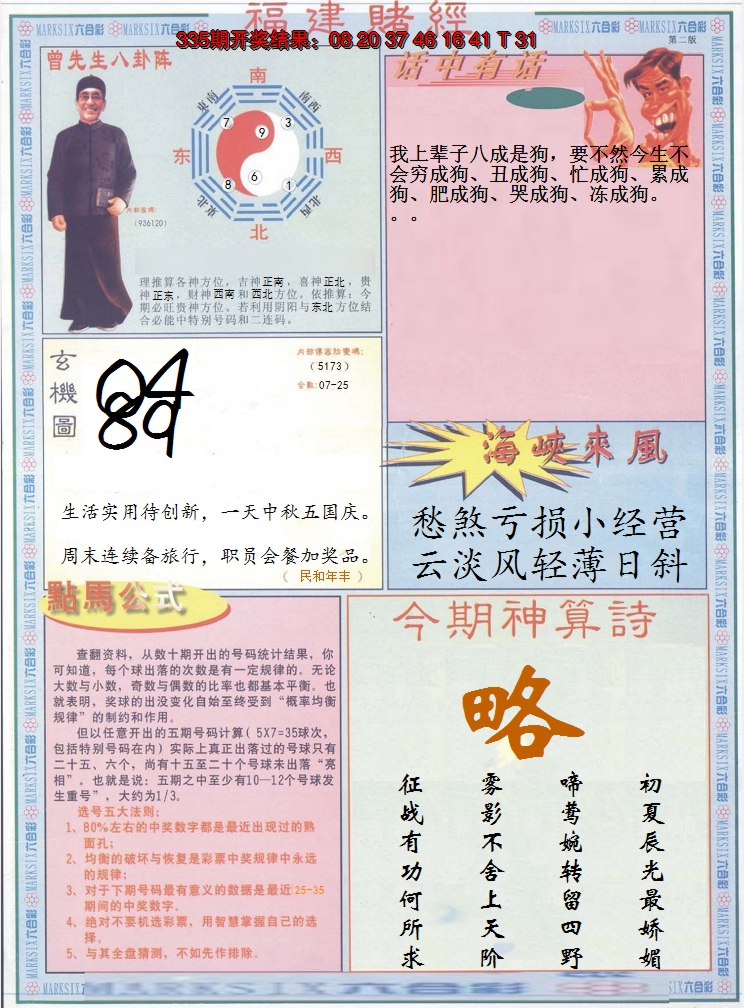 福建賭經
335期开奖结果：08 20 37 46 16 41 T 31
第二版
MARKSIX六合彩
曾先生八卦阵
南
东南
南西
7
9
3
东
西
8
6
1
东北
西北
北
内部密碼：
（936120）
理推算各神方位，吉神正南，喜神正北，贵
神正东，财神西南和西北方位。依推算：今
期必旺贵神方位。若利用阴阳与东北方位结
合必能中特别号码和二连码。
话中有话
我上辈子八成是狗，要不然今生不
会穷成狗、丑成狗、忙成狗、累成
狗、肥成狗、哭成狗、冻成狗。
。。
玄機圖
04
89
（5173）
合数:07-25
生活实用待创新，一天中秋五国庆。
周末连续备旅行，职员会餐加奖品。
（ 民和年丰 ）
海峽來風
愁煞亏损小经营
云淡风轻薄日斜
點馬公式
查翻资料，从数十期开出的号码统计结果，你
可知道，每个球出落的次数是有一定规律的。无论
大数与小数，奇数与偶数的比率也都基本平衡。也
就表明，奖球的出没变化自始至终受到“概率均衡
规律”的制约和作用。
但以任意开出的五期号码计算( 5X7=35球次，
包括特别号码在内) 实际上真正出落过的号球只有
二十五、六个，尚有十五至二十个号球未出落“亮
相”。也就是说：五期之中至少有10—12个号球发
生重号”，大约为1/3。
选号五大法则：
1、80%左右的中奖数字都是最近出现过的熟
面孔；
2、均衡的破坏与恢复是彩票中奖规律中永远
的规律；
3、对于下期号码最有意义的数据是最近25-35
期间的中奖数字。
4、绝对不要机选彩票，用智慧掌握自己的选
择。
5、与其全盘猜测，不如先作排除。
今期神算詩
略
初夏辰光最娇媚
啼莺婉转留四野
雾影不舍上天阶
征战有功何所求